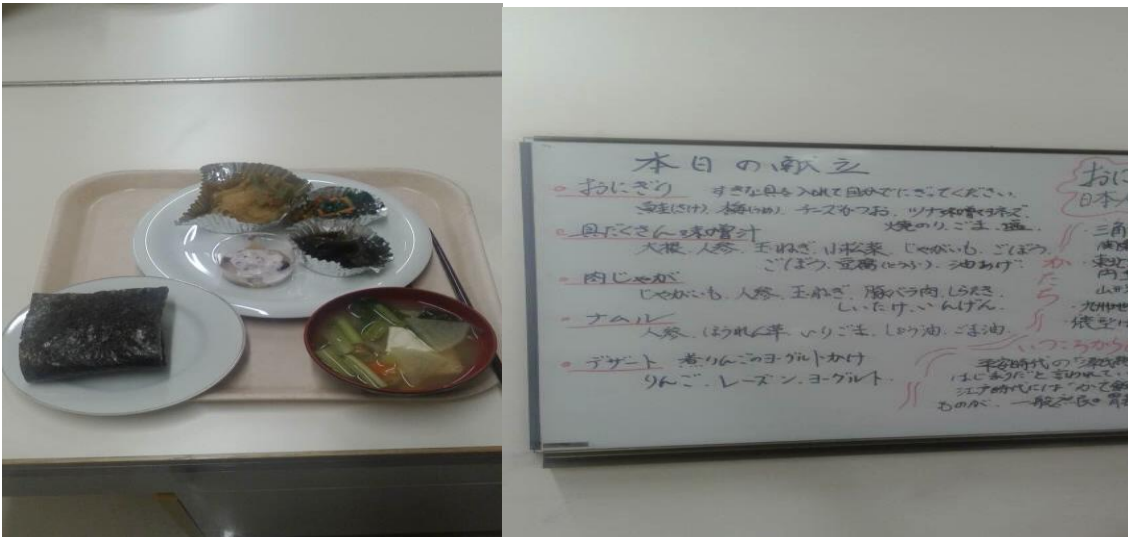 本日の献立
・おにぎり すきな具を入れて自分でにぎってください。
鮭(さけ)、梅(うめ)、チーズかつお、ツナ味噌マヨネーズ
焼のり、ごま、塩
・具だくさん味噌汁
大根、人参、玉ねぎ、小松菜、じゃがいも、ごぼう、
ごぼう、豆腐(とうふ)、油あげ
・肉じゃが
じゃがいも、人参、玉ねぎ、豚バラ肉、しらたき、
しいたけ、いんげん
・ナムル
人参、ほうれん草、いりごま、しょう油、ごま油、
・デザート 煮りんごのヨーグルトかけ
りんご、レーズン、ヨーグルト
おに
日本人
かたち
三角
山形
九州地
俵型
いつごろから
平安時代の
はじまりだと言われてい
江戸時代には
ものが、一般庶民の